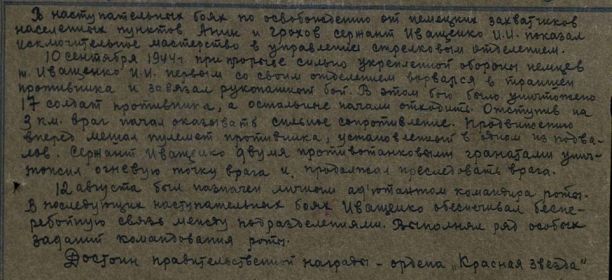 В наступательных боях по освобождению от немецких захватчиков
населенных пунктов Анин и Грохов сержант Иващенко И.И. показал
исключительное мастерство в управлении стрелковым отделением.
10 сентября 1944г при прорыве сильно укрепленной обороны немцев
т. Иващенко И.И. первым со своим отделением ворвался в траншеи
противника и завязал рукопашный бой. В этом бою было уничтожено
17 солдат противника, а остальные начали отходить. Отступив на
3 км. враг начал оказывать сильное сопротивление. Продвижению
вперед мешал пулемет противника, установленный в одном из подва-
лов. Сержант Иващенко двумя противотанковыми гранатами унич-
тожил огневую точку врага и продолжал преследовать врага.
12 августа был назначен личным ад'ютантом командира роты.
В последующих наступательных боях Иващенко обеспечивал беспе-
ребойную связь между подразделениями. Выполнял ряд особых
заданий командования роты.
Достоин правительственной награды - ордена „Красная звезда"